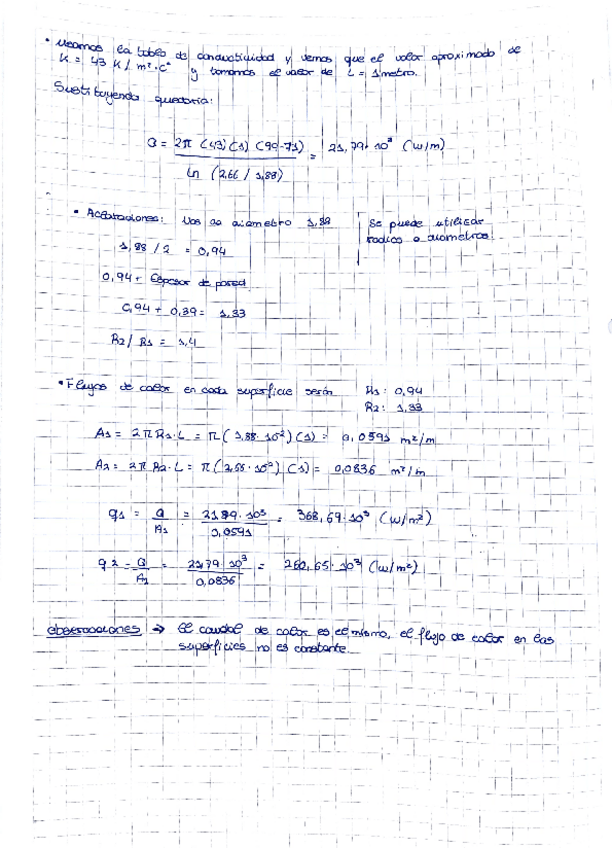 • Usamos la tabla de conductividad y vemos que el valor aproximado de
K = 43 K/m²·C° y tomamos el valor de L = 1 metro.
Sustituyendo quedaría:
Q = 2π (43) (1) (90-71) / ln (2,66 / 1,88) = 21,79·10³ (w/m)
• Aclaraciones: Nos da diametro 1,88
Se puede utilizar
radios o diametros.
1,88 / 2 = 0,94
0,94 + Espesor de pared
0,94 + 0,39 = 1,33
R2/ R1 = 1,4
• Flujos de calor en cada superficie serán
R1: 0,94
R2: 1,33
A1 = 2π R1·L = π( 1,88·10²) (1) = 0,0591 m²/m
A2 = 2π R2·L = π( 2,66·10²) (1) = 0,0836 m²/m
q1 = Q / A1 = 21,79·10³ / 0,0591 = 368,69·10³ (w/m²)
q2 = Q / A2 = 21,79·10³ / 0,0836 = 260,65·10³ (w/m²)
observaciones → El caudal de calor es el mismo, el flujo de calor en las
superficies no es constante.